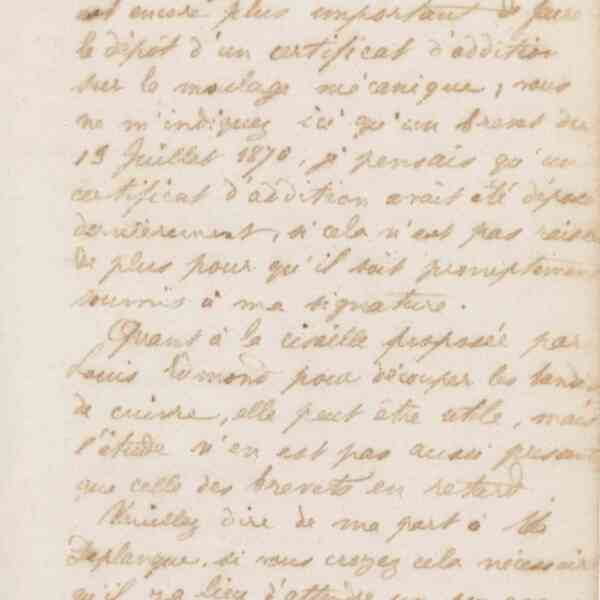 est encore plus important de faire
le dépôt d'un certificat d'addition
sur le moulage mécanique ; vous
ne m'indiquez ici qu'un brevet du
19 Juillet 1870, je pensais qu'un
certificat d'addition avait été déposé
dernièrement, si cela n'est pas raison
de plus pour qu'il soit promptement
soumis à ma signature.
Quant à la cisaille proposée par
Louis pour découper les bandes
de cuivre, elle peut être utile, mais
l'étude n'en est pas aussi pressante
que celle des brevets en retard.
Veuillez dire de ma part à M.
Deplanque, si vous croyez cela nécessaire
qu'il y a lieu d'attendre un